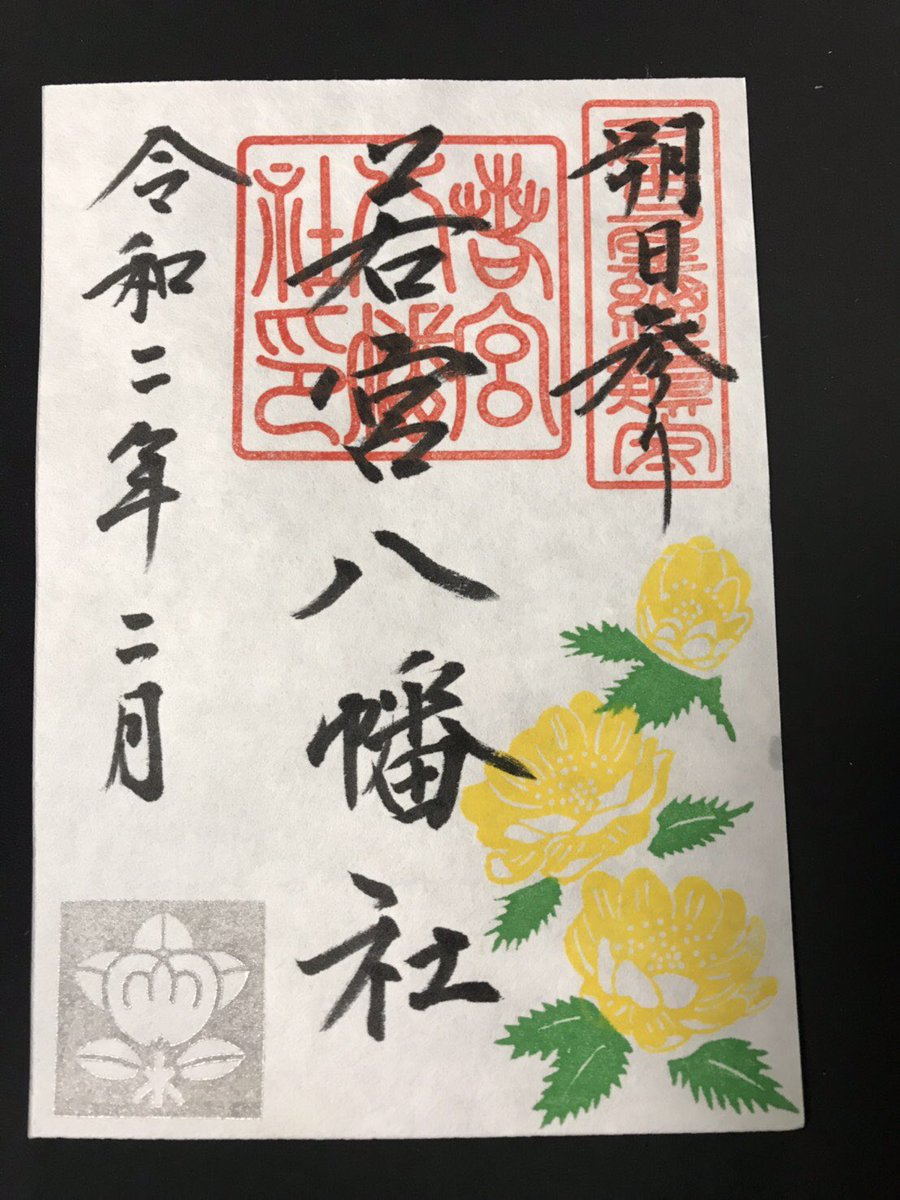 朔日参り
若宮八幡社
令和二年二月
若宮
八幡
社印